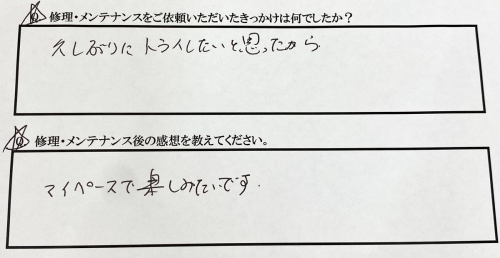 修理・メンテナンスをご依頼いただいたきっかけは何でしたか？
久しぶりにトライしたいと思ったから
修理・メンテナンス後の感想を教えてください。
マイペースで楽しみたいです.